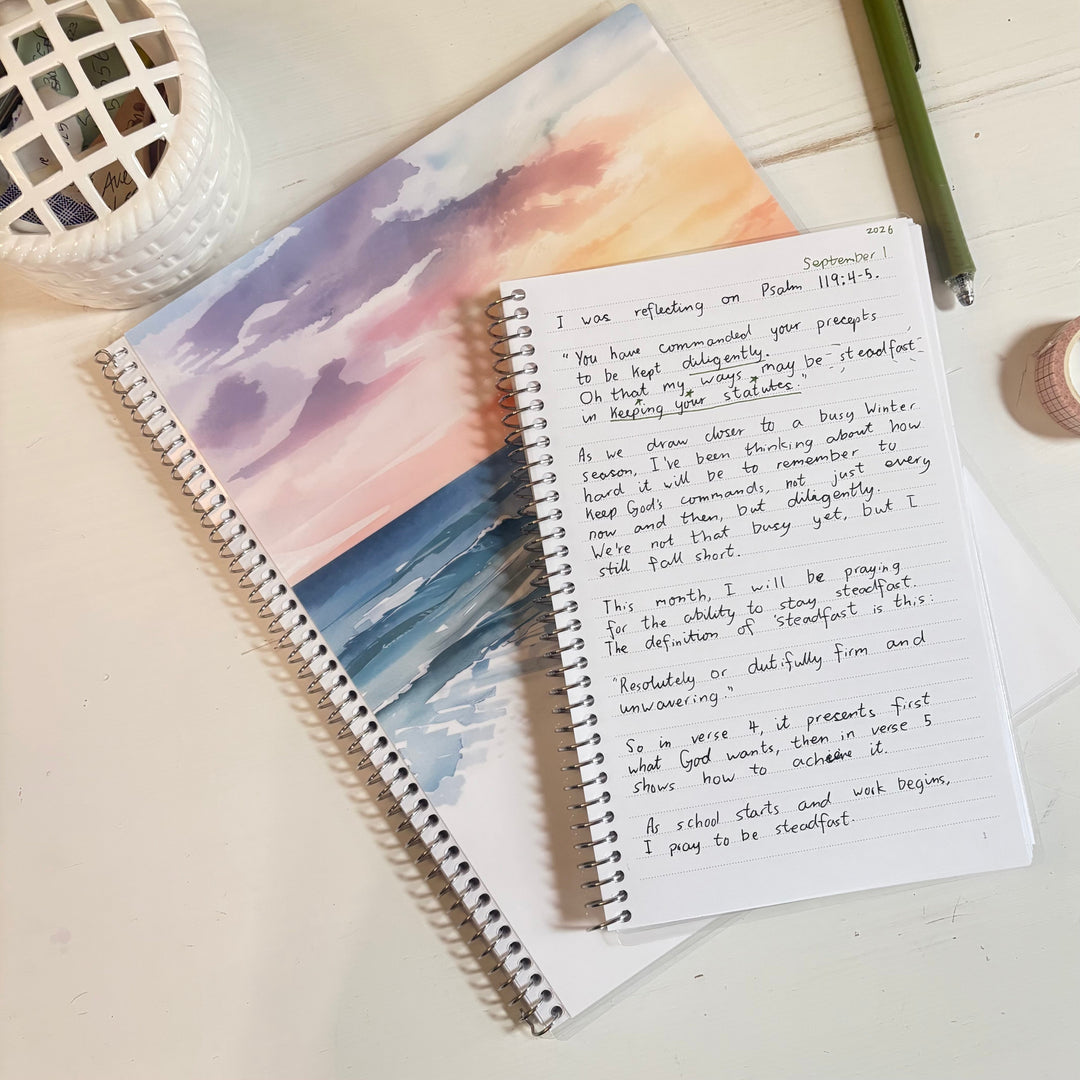 2026
September 1
I was reflecting on Psalm 119:4-5.
"You have commanded your precepts
to be kept diligently.
Oh that my ways may be steadfast
in keeping your statutes."
As we draw closer to a busy Winter
season, I've been thinking about how
hard it will be to remember to
keep God's commands, not just every
now and then, but diligently.
We're not that busy yet, but I
still fall short.
This month, I will be praying
for the ability to stay steadfast.
The definition of 'steadfast is this:
"Resolutely or dutifully firm and
unwavering."
So in verse 4, it presents first
what God wants, then in verse 5
shows how to achieve it.
As school starts and work begins,
I pray to be steadfast.
1